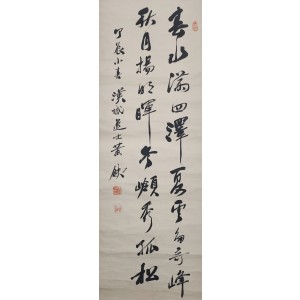 春水滿四澤夏雲多奇峰
秋月揚明暉冬嶺秀孤松
小春漢城